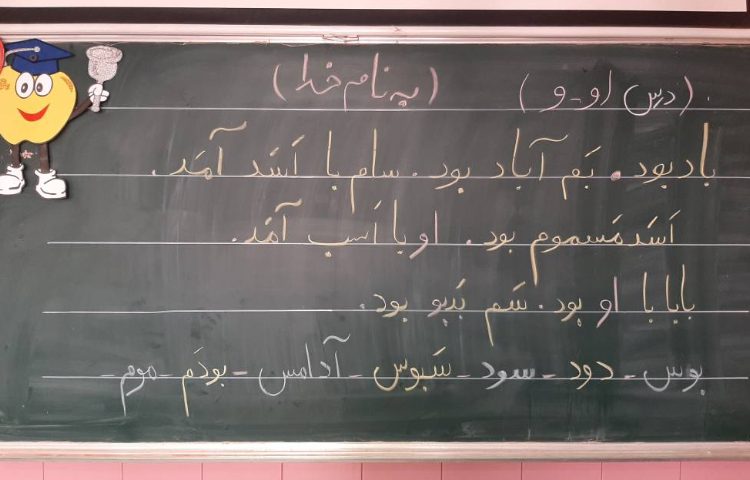 (به نام خدا)
(درس او - و)
باد بود. بَم آباد بود. سام با اَسَد آمَد.
اَسَد مَسموم بود. او با اَسب آمَد.
بابا با او بود. سَم بَدبو بود.
بوس - دود - سود - سَبوس - آداس - بودَم - موم -